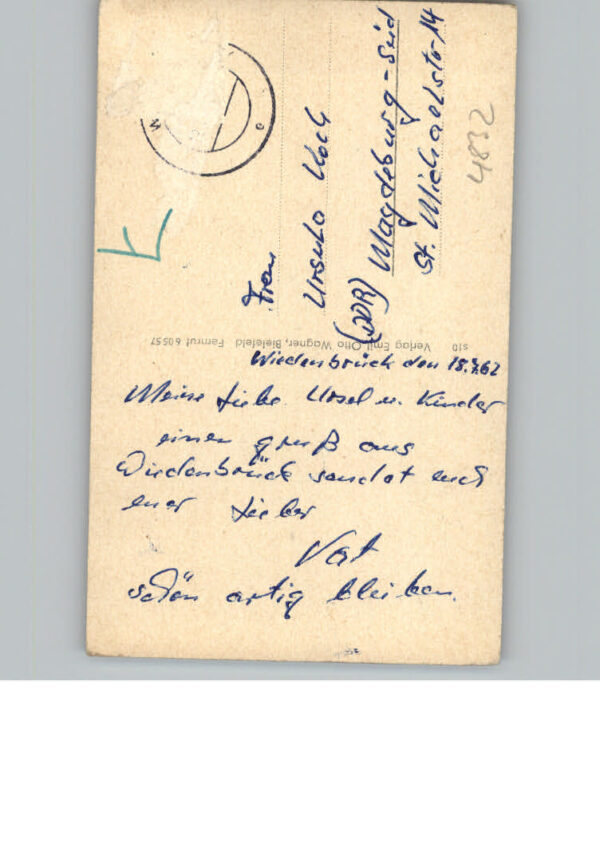 Wiedenbrück den 18.7.62
Meine Liebe Ursel u. Kinder
einen gruß aus
Wiedenbrück sendet euch
euer Lieber
Vat
schön artig bleiben.
Frau
Ursula Koch
(DDR) Magdeburg-Süd
St. Michaelstr 14
4832
S10 Verlag Emil Otto Wagner, Bielefeld Fernruf 60557